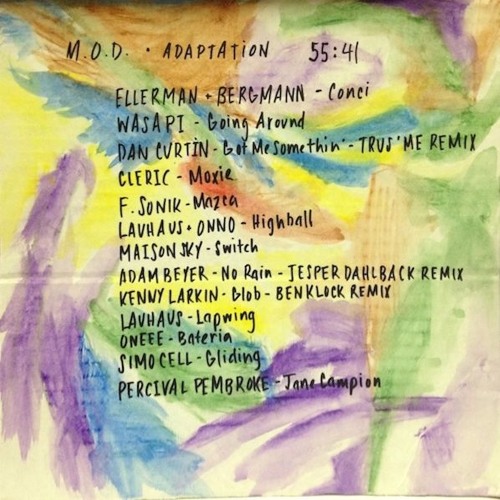 M.O.D. · ADAPTATION 55:41
ELLERMAN + BERGMANN - Conci
WASAPI - Going Around
DAN CURTIN - Got Me Somethin' - TRUS'ME REMIX
CLERIC - Moxie
F. SONIK - Mazca
LAUHAUS + ONNO - Highball
MAISON SKY - Switch
ADAM BEYER - No Rain - JESPER DAHLBACK REMIX
KENNY LARKIN - Glob - BEN KLOCK REMIX
LAUHAUS - Lapwing
ONEEE - Bateria
SIMO CELL - Gliding
PERCIVAL PEMBROKE - Jane Campion